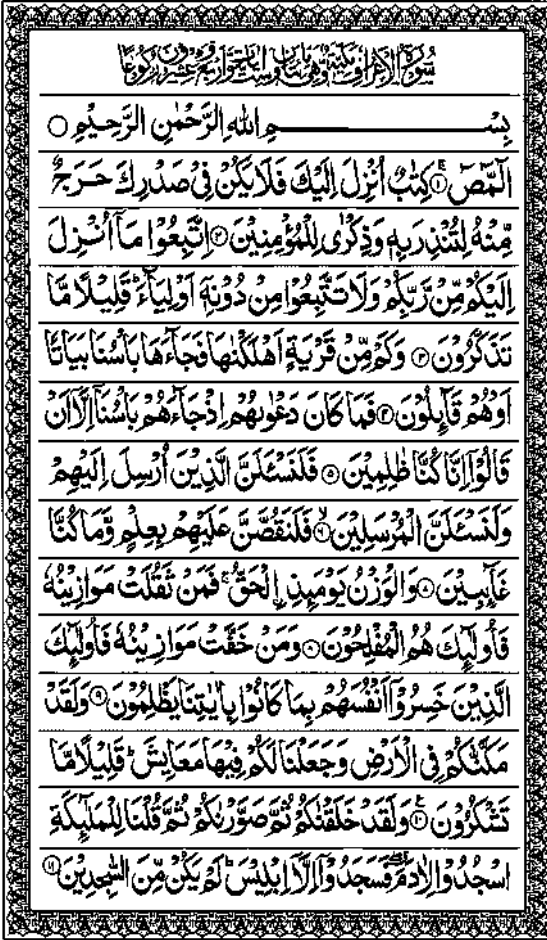 سُوْرَةُ الْاَعْرَافِ مَكِّيَّةٌ وَّهِيَ مِائَتَانِ وَسِتُّ اٰيَاتٍ وَّاَرْبَعٌ وَّعِشْرُوْنَ رُكُوْعًا
بِسْمِ اللّٰهِ الرَّحْمٰنِ الرَّحِيْمِ ○
الٓمّٓصٓ ۚ﴿۱﴾ كِتٰبٌ اُنْزِلَ اِلَيْكَ فَلَا يَكُنْ فِيْ صَدْرِكَ حَرَجٌ
مِّنْهُ لِتُنْذِرَ بِهٖ وَذِكْرٰى لِلْمُؤْمِنِيْنَ ﴿۲﴾ اِتَّبِعُوْا مَاۤ اُنْزِلَ
اِلَيْكُمْ مِّنْ رَّبِّكُمْ وَلَا تَتَّبِعُوْا مِنْ دُوْنِهٖۤ اَوْلِيَآءَ ؕ قَلِيْلًا مَّا
تَذَكَّرُوْنَ ﴿۳﴾ وَكَمْ مِّنْ قَرْيَةٍ اَهْلَكْنٰهَا فَجَآءَهَا بَاْسُنَا بَيَاتًا
اَوْ هُمْ قَآئِلُوْنَ ﴿۴﴾ فَمَا كَانَ دَعْوٰىهُمْ اِذْ جَآءَهُمْ بَاْسُنَاۤ اِلَّاۤ اَنْ
قَالُوْۤا اِنَّا كُنَّا ظٰلِمِيْنَ ﴿۵﴾ فَلَنَسْـَٔلَنَّ الَّذِيْنَ اُرْسِلَ اِلَيْهِمْ
وَلَنَسْـَٔلَنَّ الْمُرْسَلِيْنَ ۙ﴿۶﴾ فَلَنَقُصَّنَّ عَلَيْهِمْ بِعِلْمٍ وَّمَا كُنَّا
غَآئِبِيْنَ ﴿۷﴾ وَالْوَزْنُ يَوْمَئِذِ ِۨالْحَقُّ ۚ فَمَنْ ثَقُلَتْ مَوَازِيْنُهٗ
فَاُولٰٓئِكَ هُمُ الْمُفْلِحُوْنَ ﴿۸﴾ وَمَنْ خَفَّتْ مَوَازِيْنُهٗ فَاُولٰٓئِكَ
الَّذِيْنَ خَسِرُوْۤا اَنْفُسَهُمْ بِمَا كَانُوْا بِاٰيٰتِنَا يَظْلِمُوْنَ ﴿۹﴾ وَلَقَدْ
مَكَّنّٰكُمْ فِي الْاَرْضِ وَجَعَلْنَا لَكُمْ فِيْهَا مَعَايِشَ ؕ قَلِيْلًا مَّا
تَشْكُرُوْنَ ﴿۱۰﴾ وَلَقَدْ خَلَقْنٰكُمْ ثُمَّ صَوَّرْنٰكُمْ ثُمَّ قُلْنَا لِلْمَلٰٓئِكَةِ
اسْجُدُوْا لِاٰدَمَ ۖ فَسَجَدُوْۤا اِلَّاۤ اِبْلِيْسَ ؕ لَمْ يَكُنْ مِّنَ السّٰجِدِيْنَ ﴿۱۱﴾